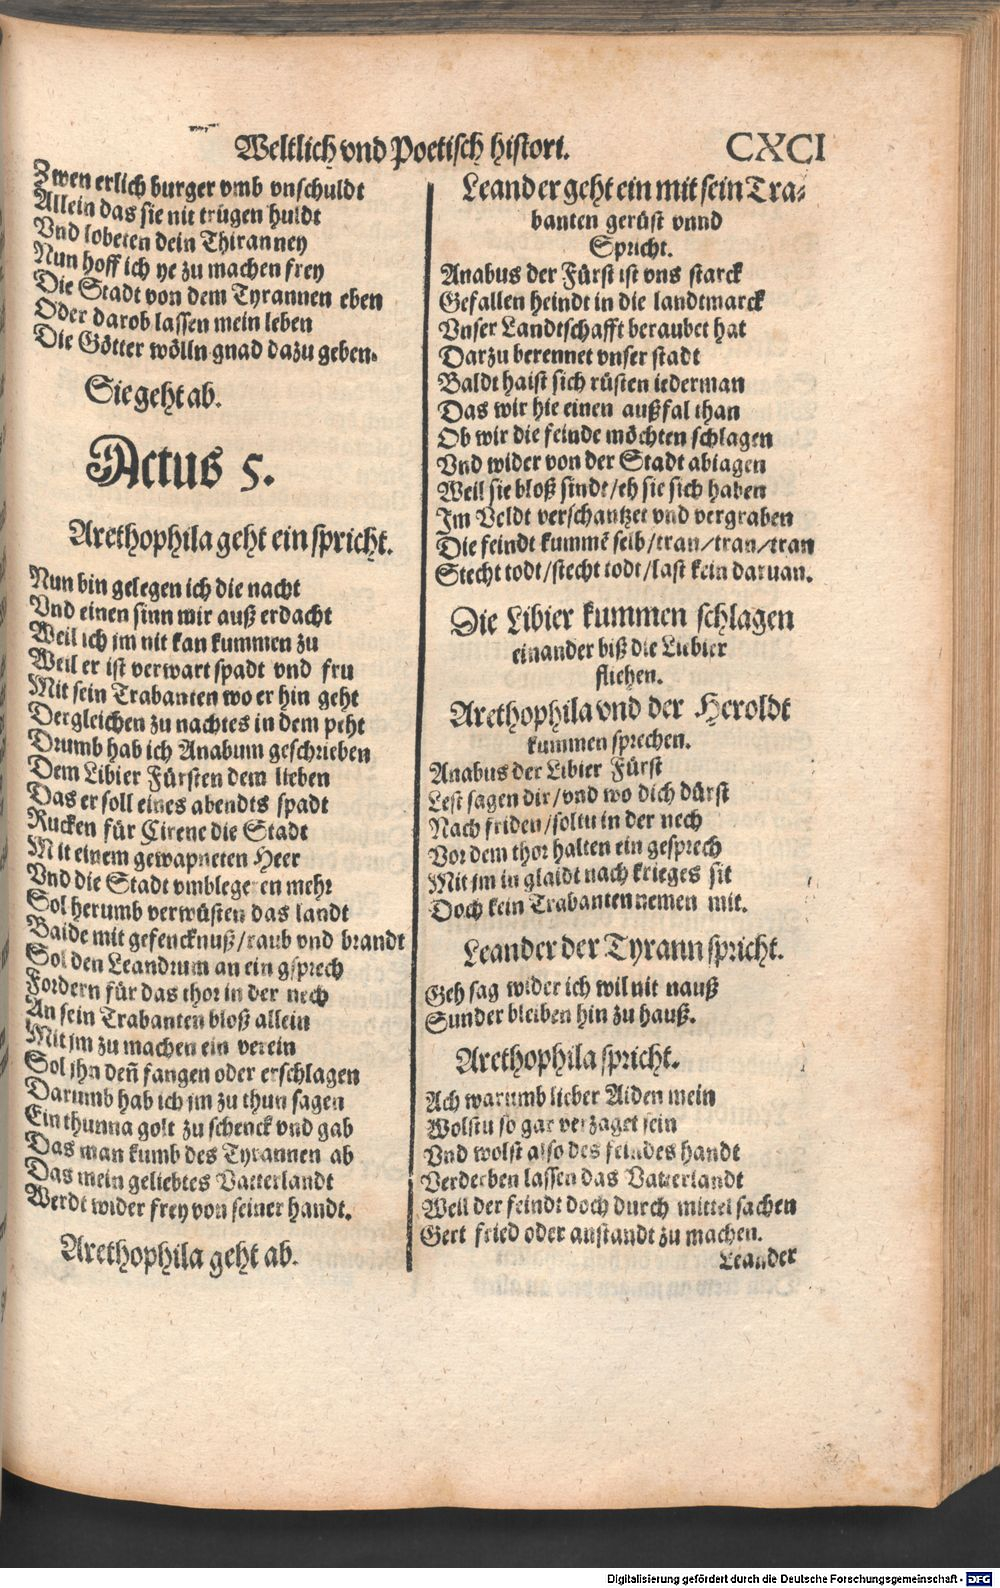 Weltlich vnd Poetisch histori. CXCI
Zwen erlich burger vmb vnschuldt
Allein das sie nit trügen huldt
Vnd lobeten dein Thiranney
Nun hoff ich ye zu machen frey
Die Stadt von dem Tyrannen eben
Oder darob lassen mein leben
Die Götter wölln gnad dazu geben.
Sie geht ab.
Actus 5.
Arethophila geht ein spricht.
Nun bin gelegen ich die nacht
Vnd einen sinn mir auß erdacht
Weil ich jm nit kan kummen zu
Weil er ist verwart spadt vnd fru
Mit sein Trabanten wo er hin geht
Dergleichen zu nachtes in dem peht
Drumb hab ich Anabum geschrieben
Dem Libier Fürsten dem lieben
Das er soll eines abendts spadt
Rucken für Cirene die Stadt
Mit einem gewapneten Heer
Vnd die Stadt vmblegeren mehr
Sol herumb verwüsten das landt
Baide mit gefencknuß/raub vnd brandt
Sol den Leandrum an ein gsprech
Fordern für das thor in der nech
An sein Trabanten bloß allein
Mit jm zu machen ein verein
Sol jhn deñ fangen oder erschlagen
Darumb hab ich jm zu thun sagen
Ein thunna golt zu schenck vnd gab
Das man kumb des Tyrannen ab
Das mein geliebtes Vatterlandt
Werdt wider frey von seiner handt.
Arethophila geht ab.
Leander geht ein mit sein Tra⸗
banten gerüst vnnd
Spricht.
Anabus der Fürst ist vns starck
Gefallen heindt in die landtmarck
Vnser Landtschafft beraubet hat
Darzu berennet vnser stadt
Baldt haist sich rüsten iederman
Das wir hie einen außfal than
Ob wir die feinde möchten schlagen
Vnd wider von der Stadt abiagen
Weil sie bloß sindt/eh sie sich haben
Im Veldt verschantzet vnd vergraben
Die feindt kummẽ selb/tran/tran/tran
Stecht todt/stecht todt/last kein daruan.
Die Libier kummen schlagen
einander biß die Lubier
fliehen.
Arethophila vnd der Heroldt
kummen sprechen.
Anabus der Libier Fürst
Lest sagen dir/vnd wo dich dürst
Nach friden/soltu in der nech
Vor dem thor halten ein gesprech
Mit jm in glaidt nach krieges sit
Doch kein Trabanten nemen mit.
Leander der Tyrann spricht.
Geh sag wider ich wil nit nauß
Sunder bleiben hin zu hauß.
Arethophila spricht.
Ach warumb lieber Aiden mein
Wolstu so gar verzaget sein
Vnd wolst also des feindes handt
Verderben lassen das Vatterlandt
Weil der feindt doch durch mittel sachen
Gert fried oder anstandt zu machen.
Leander
Digitalisierung gefördert durch die Deutsche Forschungsgemeinschaft - DFG